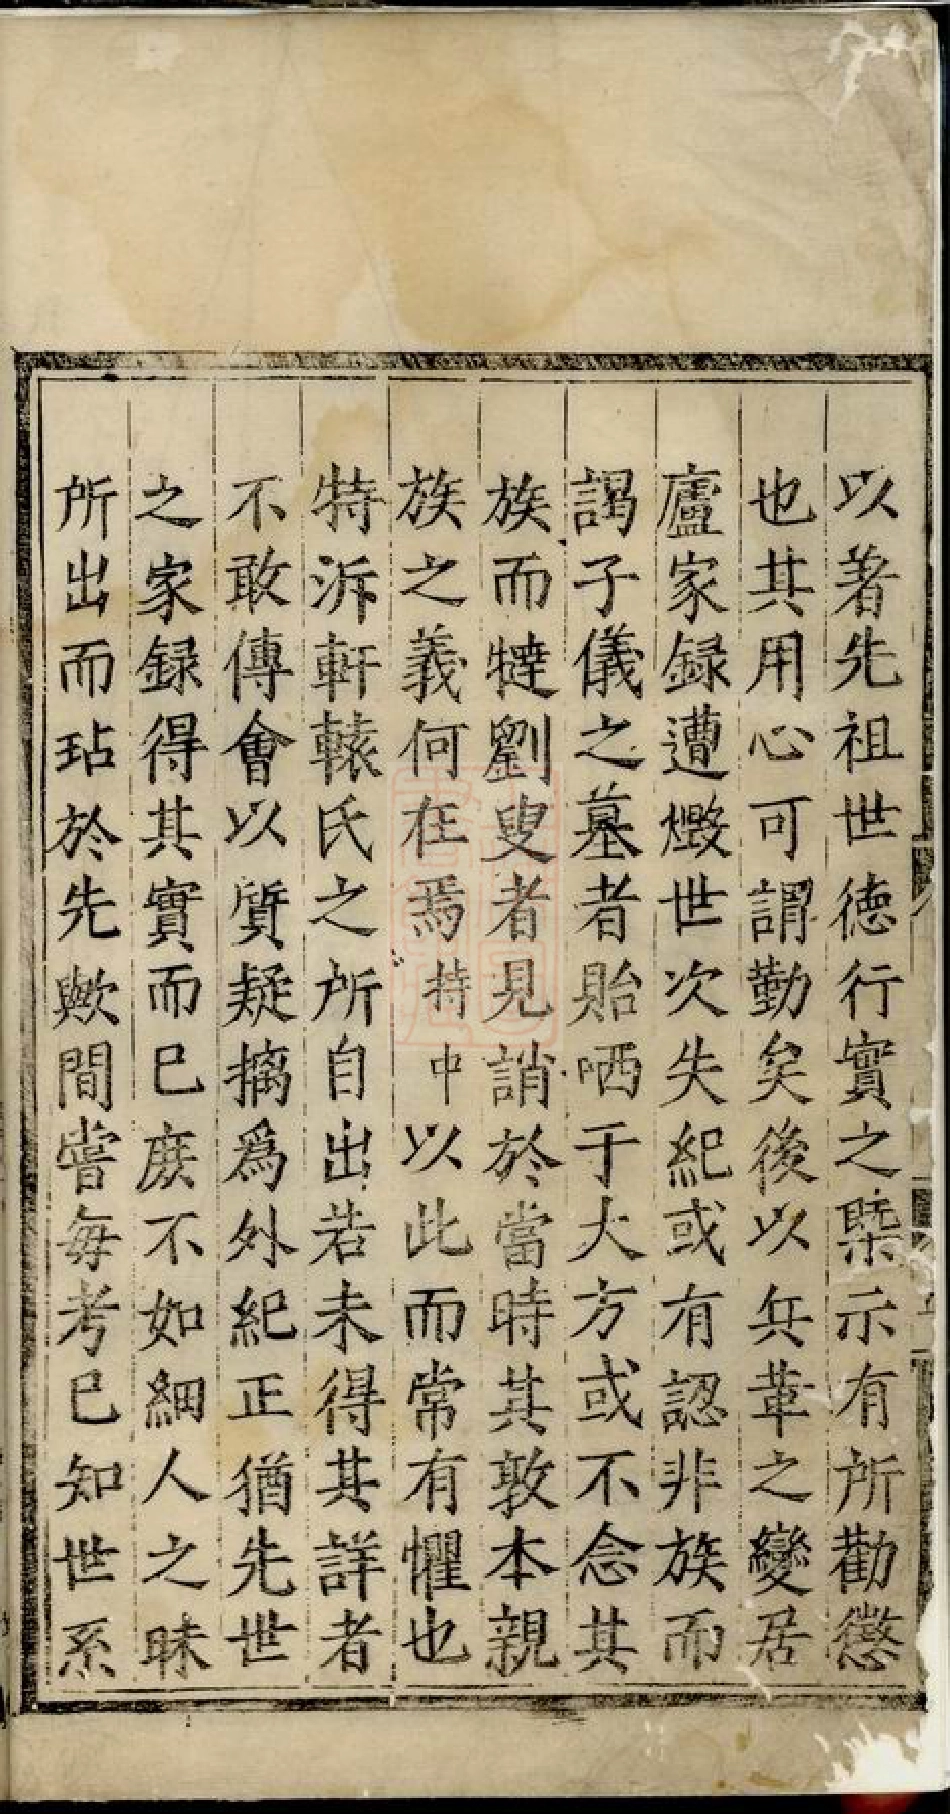 以著先祖世德行實之槩示有所勸懲
也其用心可謂勤矣後以兵革之變居
廬家録遭燬世次失紀或有認非族而
謁子儀之墓者貽哂于大方或不念其
族而撻劉叟者見誚於當時其敦本親
族之義何在焉特中以此而常有懼也
特泝軒轅氏之所自出若未得其詳者
不敢傳會以質疑摛爲外紀正猶先世
之家録得其實而已庶不如細人之昧
所出而玷於先歟間嘗每考已知世系